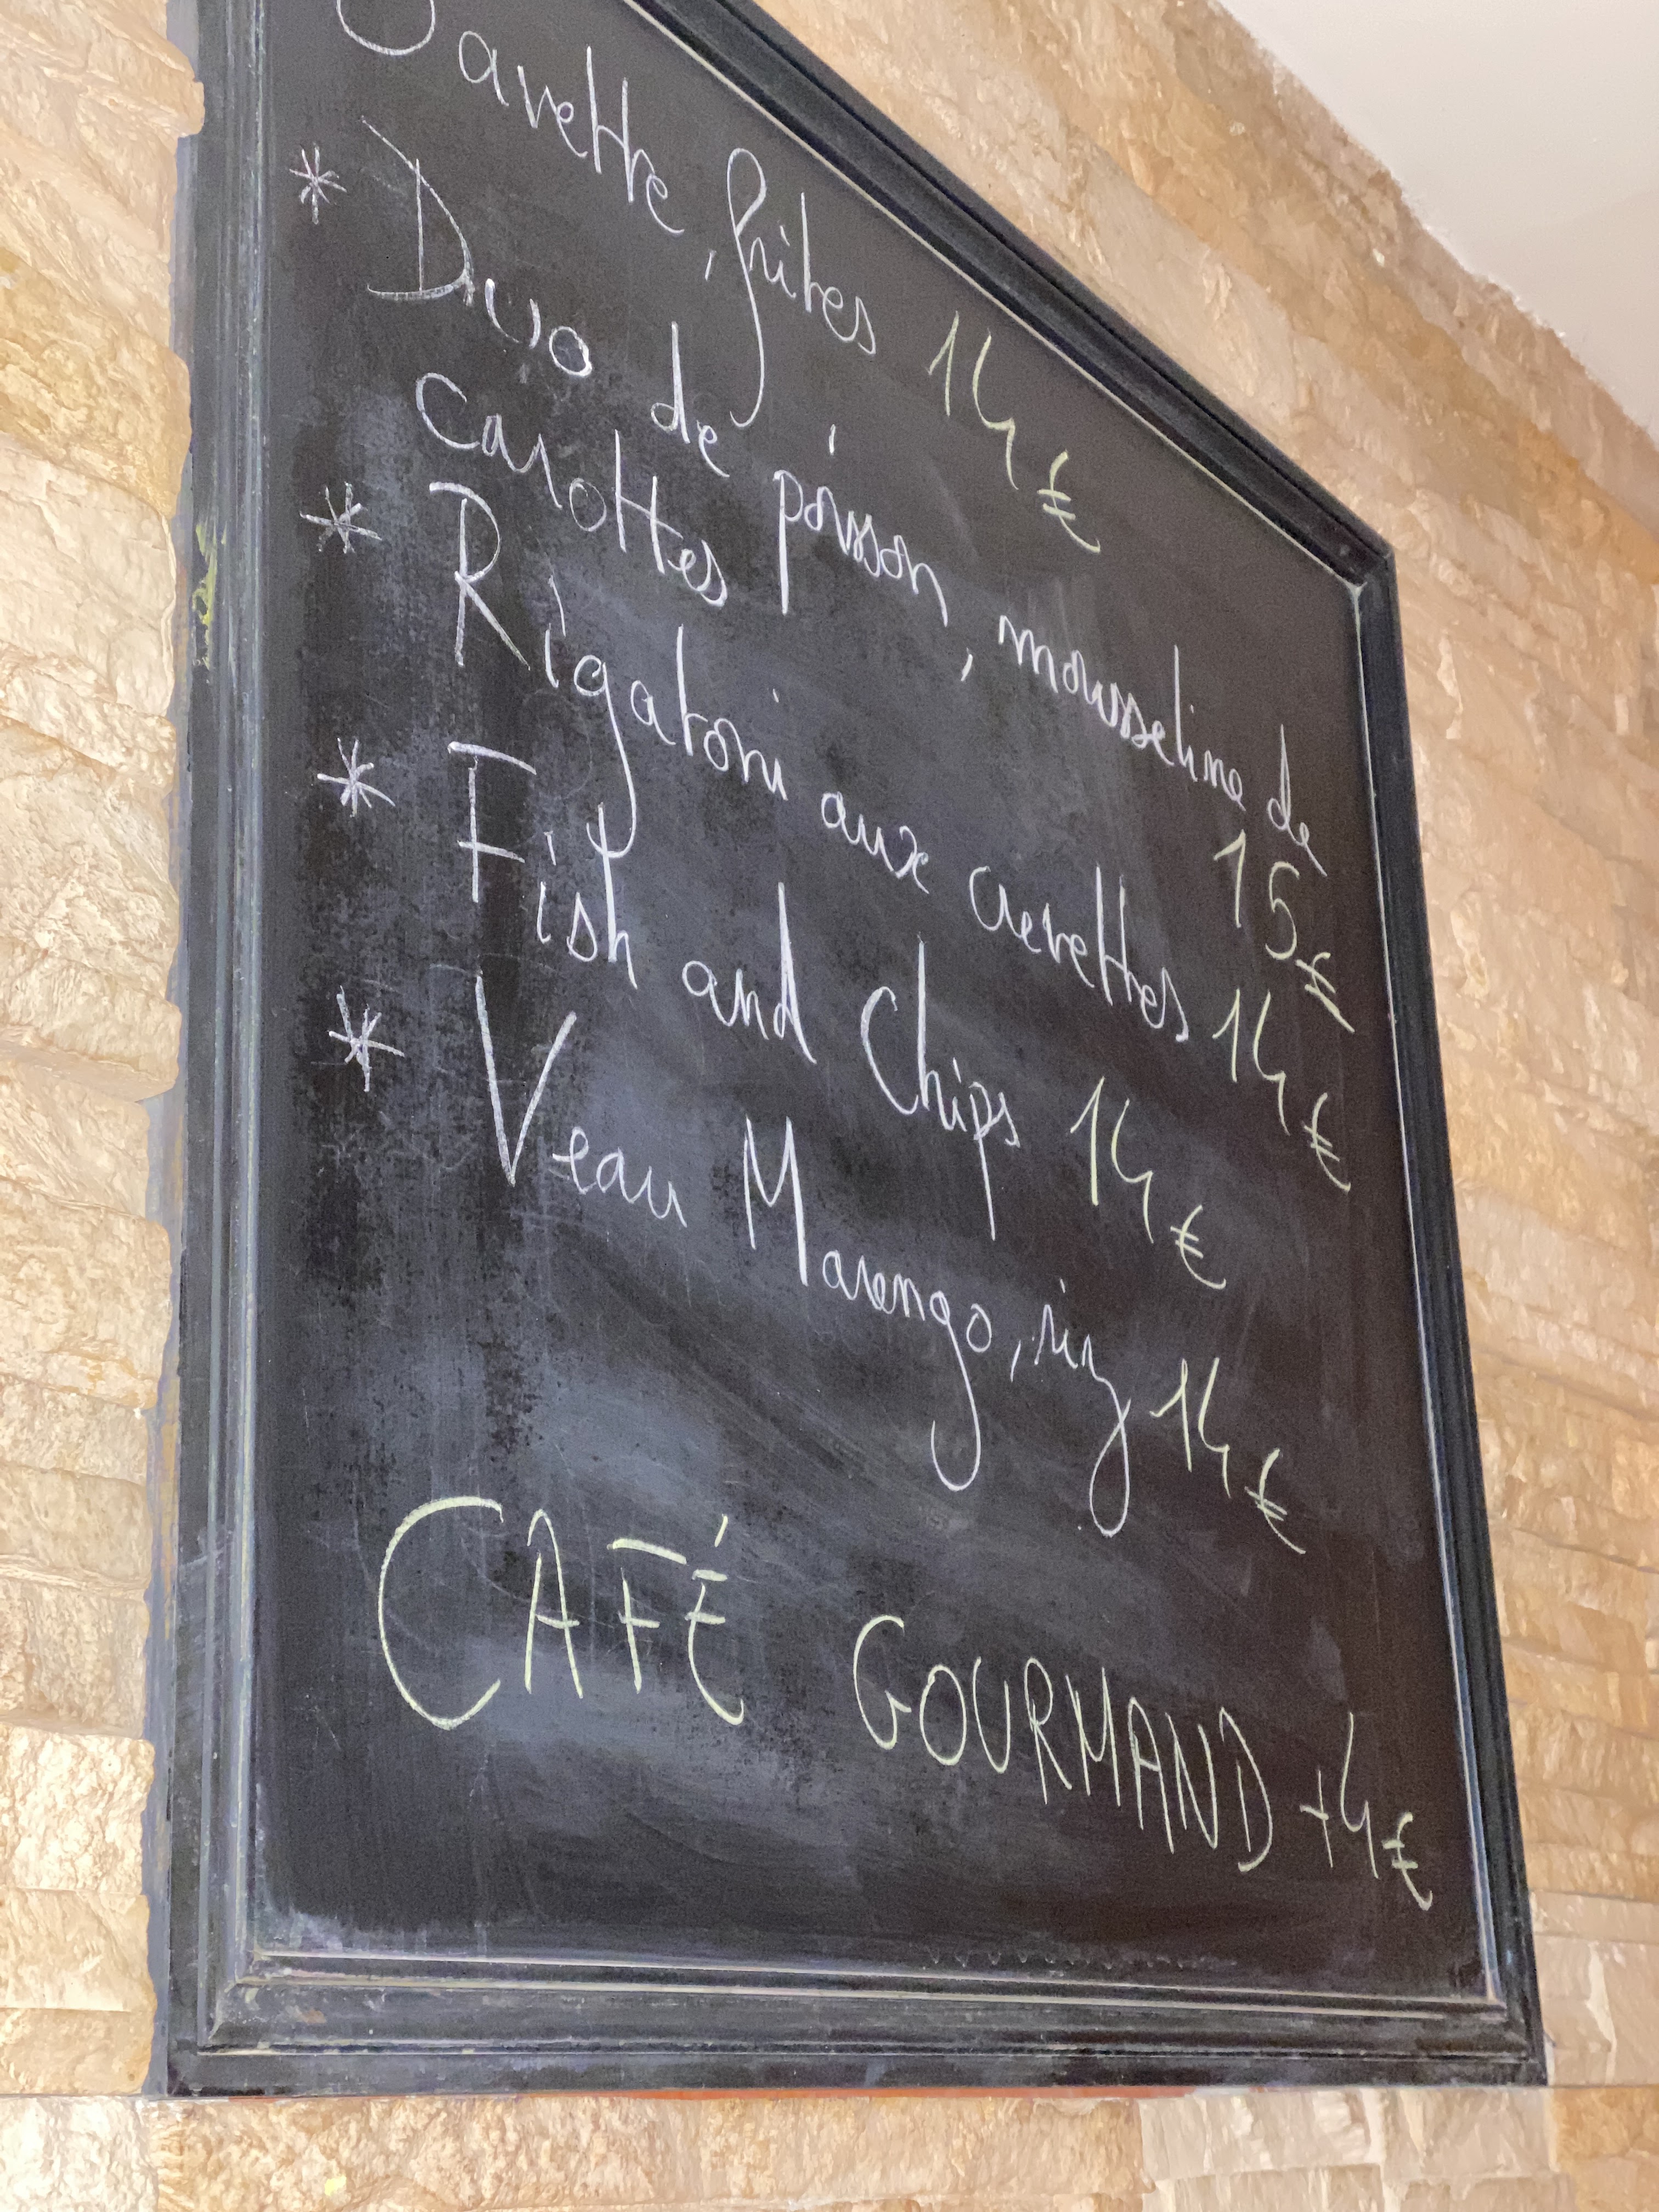 Bavette, frites 14€
* Duo de poisson, mousseline de
carottes 15€
* Rigatoni aux crevettes 14€
* Fish and Chips 14€
* Veau Marengo, riz 14€
CAFÉ GOURMAND +4€